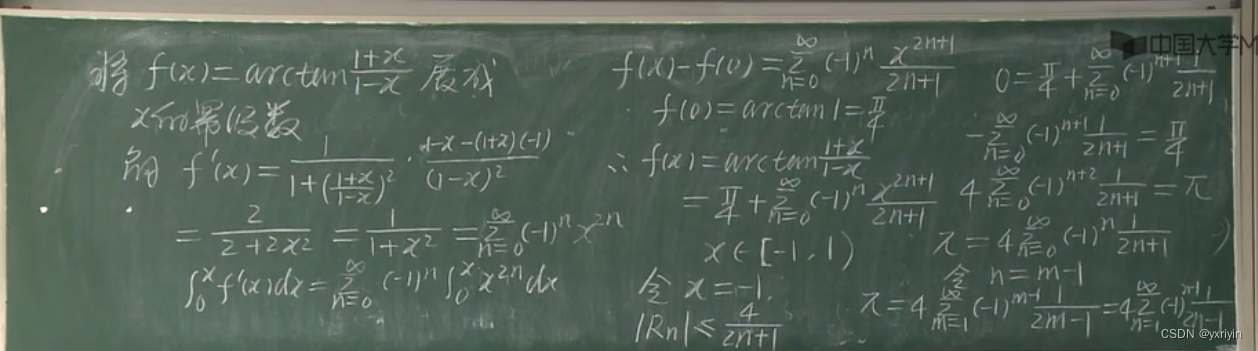 将 f(x)=arctan \frac{1+x}{1-x} 展成
x的幂级数
解 f'(x)=\frac{1}{1+(\frac{1+x}{1-x})^2}·\frac{1-x-(1+x)(-1)}{(1-x)^2}
=\frac{2}{2+2x^2}=\frac{1}{1+x^2}=\sum_{n=0}^{∞}(-1)^n x^{2n}
∫_0^x f'(x)dx=\sum_{n=0}^{∞}(-1)^n∫_0^x x^{2n}dx
f(x)-f(0)=\sum_{n=0}^{∞}(-1)^n\frac{x^{2n+1}}{2n+1}
f(0)=arctan1=\frac{π}{4}
∴f(x)=arctan\frac{1+x}{1-x}
=\frac{π}{4}+\sum_{n=0}^{∞}(-1)^n\frac{x^{2n+1}}{2n+1}
x∈[-1,1)
令 x=-1.
|Rn|≤\frac{4}{2n+1}
0=\frac{π}{4}+\sum_{n=0}^{∞}(-1)^{n+1}\frac{1}{2n+1}
-\sum_{n=0}^{∞}(-1)^{n+1}\frac{1}{2n+1}=\frac{π}{4}
4\sum_{n=0}^{∞}(-1)^{n+2}\frac{1}{2n+1}=π
π=4\sum_{n=0}^{∞}(-1)^n\frac{1}{2n+1}
令 n=m-1
π=4\sum_{m=1}^{∞}(-1)^{m-1}\frac{1}{2m-1}=4\sum_{n=1}^{∞}(-1)^{n-1}\frac{1}{2n-1}
中国大学M
CSDN @yxriyin